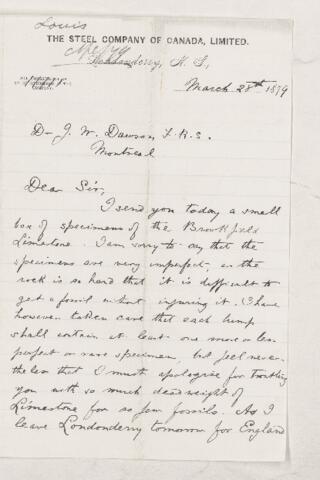 Louis
THE STEEL COMPANY OF CANADA, LIMITED.
Londonderry, N. S.,
March 28th 1879
Dr J. W. Dawson F.R.S.
Montreal
Dear Sir,
I send you today a small
box of specimens of the Brookfield
Limestone. I am sorry to say that the
specimens are very imperfect, as the
rock is so hard that it is difficult to
get a fossil without injuring it. I have
however taken care that each lump
shall contain at least one more or less
perfect or rare specimen, but feel never-
theless that I must apologise for troubling
you with so much deadweight of
Limestone for so few fossils. As I
leave Londonderry tomorrow for England